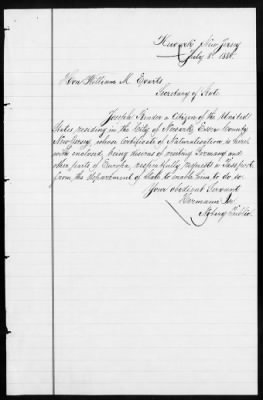 Newark New Jersey
July 8. 1880.
Hon William M. Evarts
Secretary of State
Joseph a Citizen of the United
States, residing in the City of Newark, Essex County
New Jersey, whose Certificate of Naturalization is here
with enclosed, being desirous of visiting Germany and
other parts of Europe, respectfully requests a Passport
from the Department of State to enable him to do so.
Your obedient Servant
Hermann
Notary Public